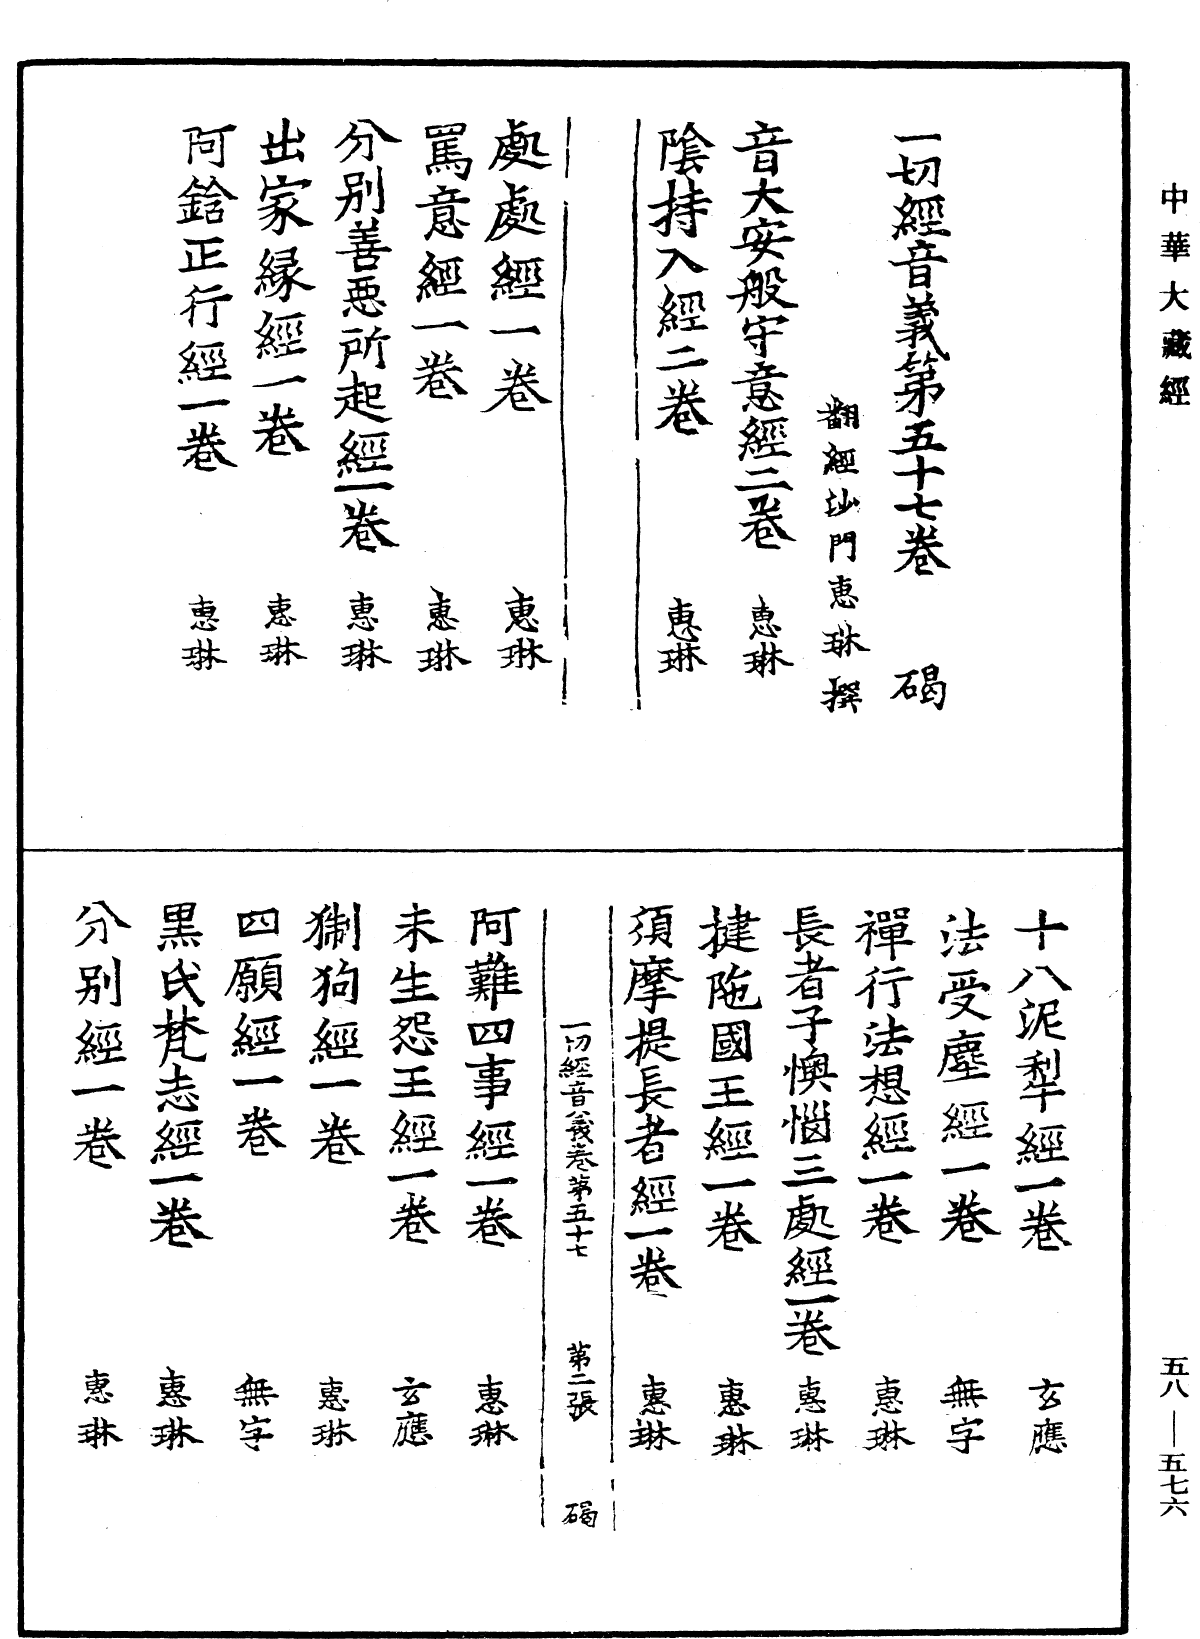 中華大藏經
一切經音義第五十七卷 碣
翻經沙門惠琳撰
音大安般守意經二卷 惠琳
陰持入經二卷 惠琳
處處經一卷 惠琳
罵意經一卷 惠琳
分別善惡所起經一卷 惠琳
出家緣經一卷 惠琳
阿鋡正行經一卷 惠琳
十八泥犁經一卷 玄應
法受塵經一卷 無字
禪行法想經一卷 惠琳
長者子懊惱三處經一卷 惠琳
揵陁國王經一卷 惠琳
須摩提長者經一卷 惠琳
一切經音義卷第五十七 第二張 碣
阿難四事經一卷 惠琳
未生怨王經一卷 玄應
猘狗經一卷 惠琳
四願經一卷 無字
黑氏梵志經一卷 惠琳
分別經一卷 惠琳
五八—五七六